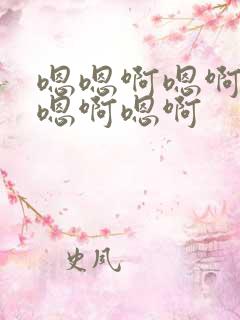 嗯嗯啊嗯啊
嗯啊嗯啊
史凤